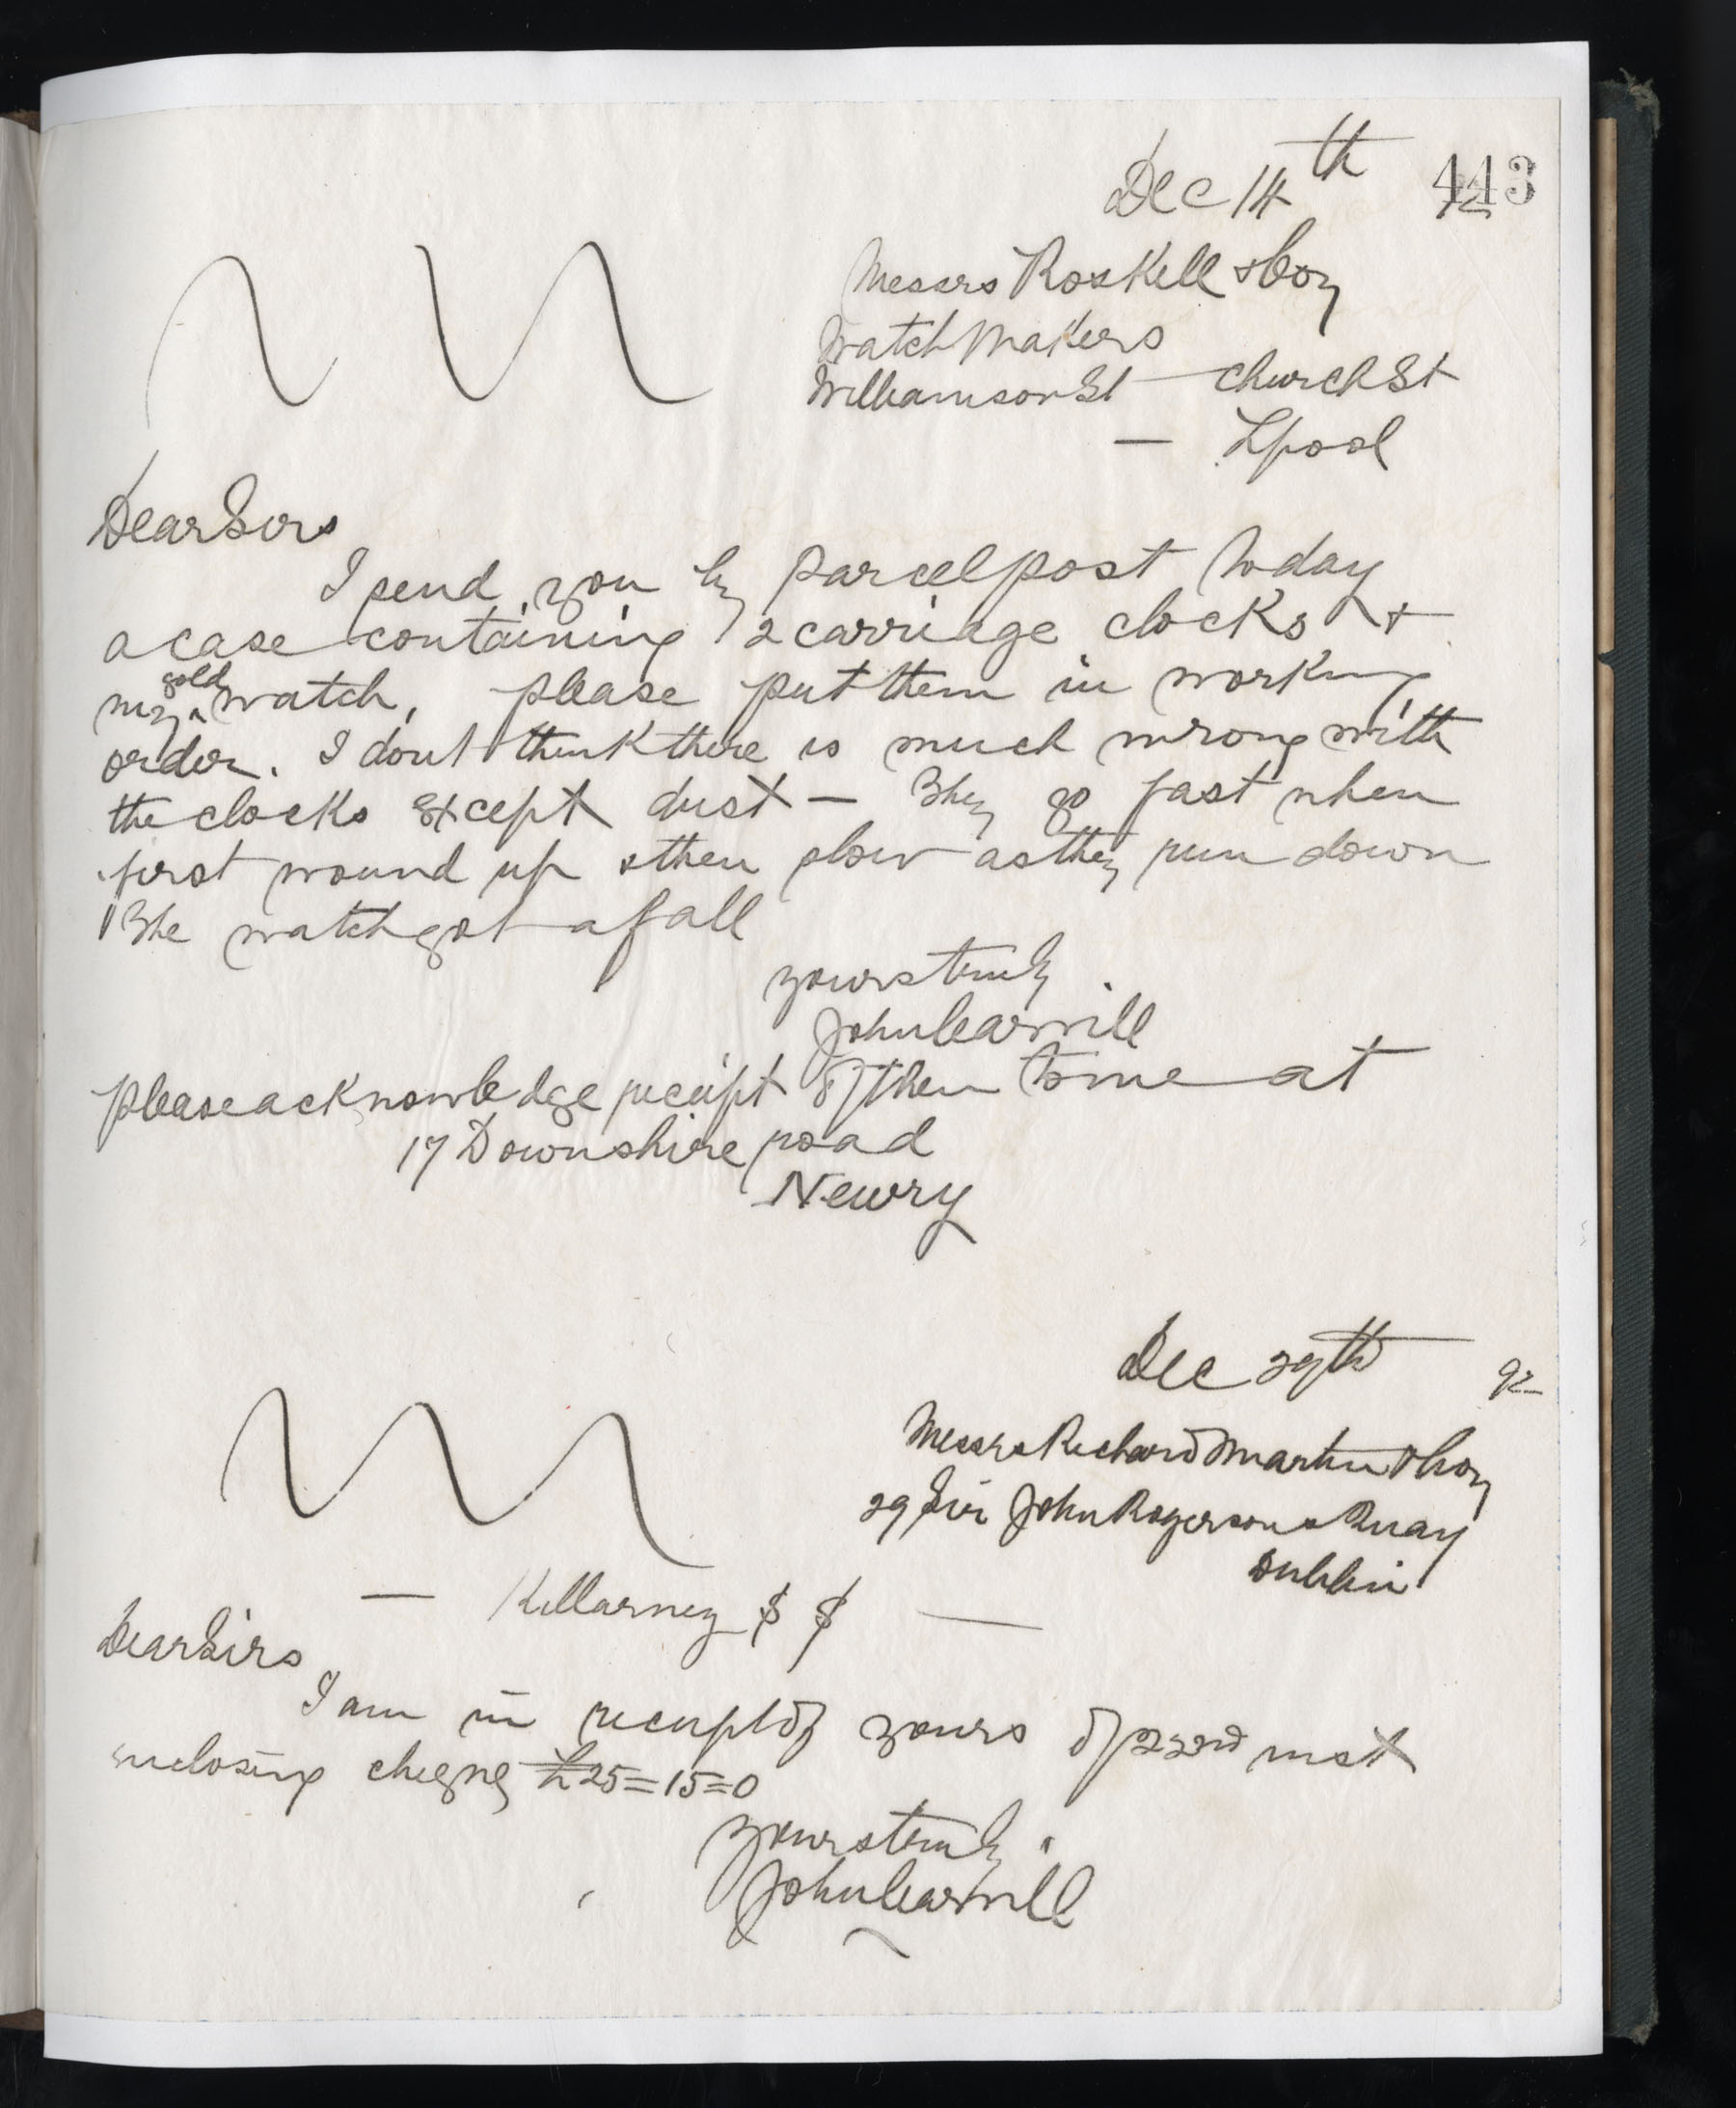 Dec 14th 92
443
Messrs Roskell & Coy
Watch Makers
Williamson St — Church St
— Lpool
Dear Sirs
I send you by parcel post today
a case containing 2 carriage clocks &
my gold watch, please put them in working
order. I dont think there is much wrong with
the clocks except dust — They go fast when
first wound up & then slow as they run down
The watch got a fall
yours truly
John Carvill
please acknowledge receipt of them to me at
17 Downshire road
Newry
Dec 29th 92
Messrs Richard Martin & Coy
29 Sir John Rogersons Quay
Dublin
— Killarney $ $ —
Dear Sirs
I am in receipt of yours of 22nd inst
enclosing cheque £25=15=0
yours truly
John Carvill